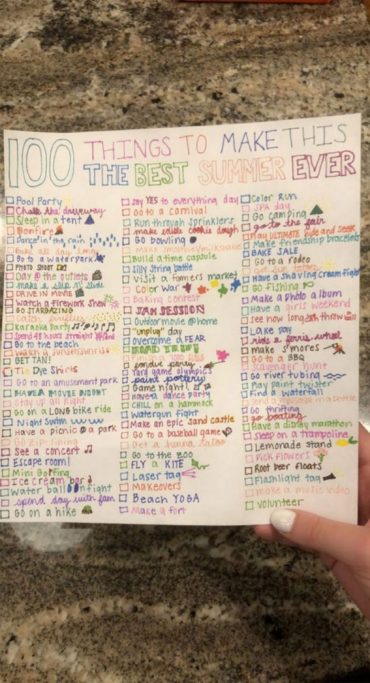 100 THINGS TO MAKE THIS
THE BEST SUMMER EVER
Pool Party
Chalk the driveway
Sleep in a tent
Bonfire
Dance in the rain
Go to a waterpark
PHOTO SHOOT
Day @ the outlets
make a slip n' slide
DRIVE IN MOVIE
Watch a firework show
GO STARGAZING
Karaoke Party
Spend 24 hours straight
Go to the beach
Watch a
GET TAN!
Tie Dye Shirts
Go to an amusement park
MARVEL MOVIE NIGHT
Stay up all night
Go on a LONG bike ride
Night Swim
Have a picnic @ a park
Go zip lining
See a concert
Escape room!
Mini Golfing
Ice cream bar
Water balloon fight
spend day with fam
Go on a hike
say YES to everything day
Go to a carnival
Run through sprinklers
make edible cookie dough
Go bowling
Make smoothies/milkshakes
Build a time capsule
Silly String battle
Visit a farmers market
Color war
Baking contest
JAM SESSION
Outdoor movie @ home
"unplug" day
overcome A FEAR
ROAD TRIP!!
Yard game olympics
paint pottery
Game night
Have a dance party
CHILL on a hammock
Watergun fight
Make an epic sand castle
Go to a baseball game
Get a henna tattoo
Go to the zoo
FLY A KITE
Laser tag
Makeovers
Beach YOGA
Make a fort
Color Run
spa day
Go camping
go to the fair
Play ULTIMATE hide and seek
Make friendship bracelets
BAKE SALE
Go to a rodeo
Have a shaving cream fight
Go fishing
Make a photo album
Have a girls weekend
See how long
Lake day
ride a ferris wheel
Make s'mores
Go to a BBQ
Scavenger hunt
Go river tubing
Play paint twister
Find a waterfall
Go thrifting
Go boating
Have a disney marathon
sleep on a trampoline
Lemonade stand
Pick flowers
Root beer floats
Flashlight tag
make a music video
volunteer